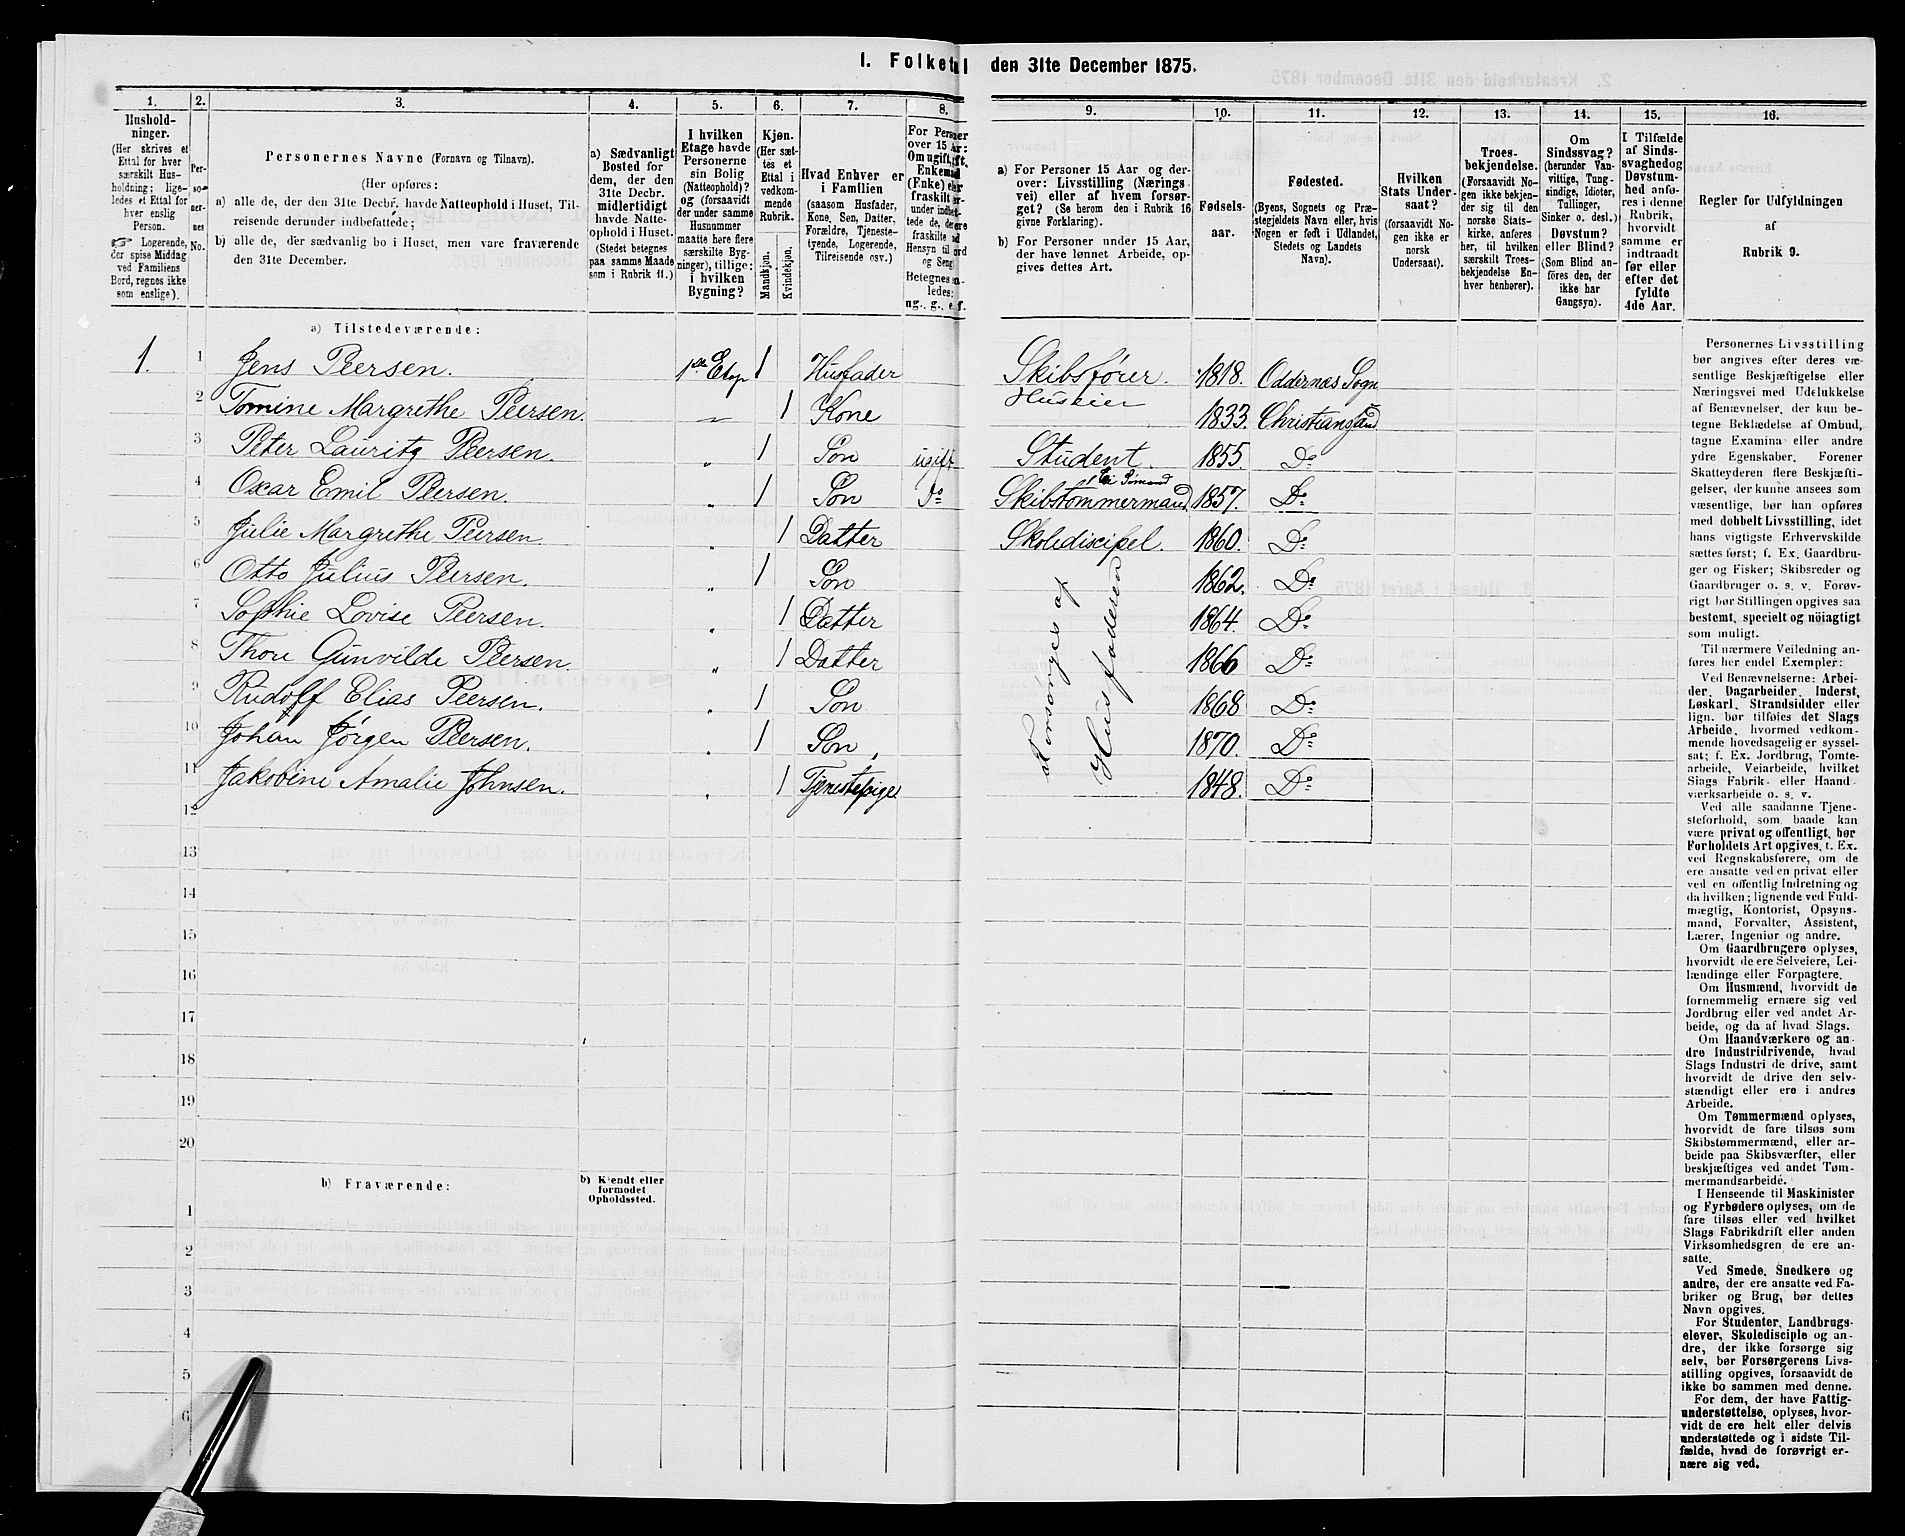 1. Folketal den 31te December 1875.
1. 2. 3. 4. 5. 6. 7. 8. 9. 10. 11. 12. 13. 14. 15. 16.
Hushold-
ninger.
(Her skrives et
Ettal for hver
særskilt Hus-
holdning; lige-
ledes et Ettal for
hver enslig
Person.
Logerende,
der spise Middag
ved Familiens
Bord, regnes ikke
som enslige).
Per-
so-
ner-
nes
No.
Personernes Navne (Fornavn og Tilnavn).
(Her opføres:
a) alle de, der den 31te Decbr. havde Natteophold i Huset, Til-
reisende derunder indbefattede;
b) alle de, der sædvanlig bo i Huset, men vare fraværende
den 31te December.
a) Sædvanligt
Bosted for
dem, der den
31te Decbr.
midlertidigt
havde Natte-
ophold i Huset.
(Stedet betegnes
paa samme Maade
som i Rubrik 11.)
I hvilken
Etage havde
Personerne
sin Bolig
(Natteophold)?
og (forsaavidt
der under samme
Husnummer
maatte høre flere
særskilte Byg-
ninger), tillige:
i hvilken
Bygning?
Kjøn.
(Her sæt-
tes et
Ettal i
vedkom-
mende
Rubrik.
Mandkjøn.
Kvindekjøn.
Hvad Enhver er
i Familien
(saasom Husfader,
Kone, Søn, Datter,
Forældre, Tjeneste-
tyende, Logerende,
Tilreisende osv.)
For Personer
over 15 Aar:
Om ugift, gift,
Enkemand
(Enke) eller
fraskilt
Betegnes
ledes:
ug., g., e., f.
a) For Personer 15 Aar og der-
over: Livsstilling (Nærings
vei) eller af hvem forsør-
get? (Se herom den i Rubrik 16
givne Forklaring).
b) For Personer under 15 Aar,
der have lønnet Arbeide, op-
gives dettes Art.
Fødsels-
aar.
Fødested.
(Byens, Sognets og Præ-
stegjeldets Navn eller, hvis
Nogen er født i Udlandet,
Stedets og Landets
Navn).
Hvilken
Stats Under-
saat?
(forsaavidt No-
gen ikke er
norsk
Undersaat).
Troes-
bekjendelse.
(Forsaavidt No-
gen ikke bekjen-
der sig til den
norske Stats-
kirke, anføres
her, til hvilken
særskilt Troes-
bekjendelse En-
hver henhører).
Om
Sindssvag?
(herunder Van-
vittige, Tung-
sindige, Idioter,
Tullinger,
Sinker o. desl.)
Døvstum?
eller Blind?
(Som Blind an-
føres den, der
ikke har
Gangsyn).
I Tilfælde
af Sinds-
svaghed og
Døvstum-
hed anfø-
res i denne
Rubrik,
hvorvidt
samme er
indtraadt
før eller
efter det
fyldte
4de Aar.
Regler for Udfyldningen
af
Rubrik 9.
a) Tilstedeværende:
1. 1 Jens Peersen. 1ste Etage 1 Husfader Skibsfører. Huseier 1818. Oddernæs Sogn
2 Tomine Margrethe Peersen. " 1 Kone 1833. Christiansand
3 Peter Lauritz Peersen. " 1 Søn ugift Student. 1855. Do
4 Oscar Emil Peersen. " 1 Søn Do Skibstømmermand 1857. Do
5 Julie Margrethe Peersen. " 1 Datter Skolediscipel. 1860. Do
6 Otto Julius Peersen. 1 Søn 1862. Do
7 Sophie Lovise Peersen. " 1 Datter 1864. Do
8 Thore Gunvilde Peersen. " 1 Datter 1866 Do
9 Rudolf Elias Peersen. " 1 Søn 1868 Do
10 Johan Jørgen Peersen. " 1 Søn 1870. Do
11 Jakobine Amalie Johnsen. " 1 Tjenestepige 1848. Do
Forsørges af
Husfaderen
12
13
14
15
16
17
18
19
20
b) Fraværende:
b) Kjendt eller
formodet
Opholdssted.
1
2
3
4
5
6
Personernes Livsstilling
bør angives efter deres væ-
sentlige Beskjæftigelse eller
Næringsvei med Udelukkelse
af Benævnelser, der kun be-
tegne Beklædelse af Ombud,
tagne Examina eller andre
ydre Egenskaber. Forener
Skatteyderen flere Beskjæfti-
gelser, der kunne ansees som
væsentlige, bør han opføres
med dobbelt Livsstilling, idet
hans vigtigste Erhvervskilde
sættes først; f. Ex. Gaardbru-
ger og Fisker; Skibsreder og
Gaardbruger o. s. v. Forøv-
rigt bør Stillingen opgives saa
bestemt, specielt og nöiagtigt
som muligt.
Til nærmere Veiledning an-
føres her endel Exempler:
Ved Benævnelserne: Arbei-
der, Dagarbeider, Inderst,
Løskarl, Strandsidder eller
lign. bør tilføies det Slags
Arbeide, hvormed vedkom-
mende hovedsagelig er syssel-
sat; f. Ex. Jordbrug, Tomte-
arbeide, Veiarbeide, hvilket
Slags Fabrik- eller Haand-
værksarbeide o. s. v.
Ved alle saadanne Tjene-
steforhold, som baade kan
være privat og offentligt, bør
Forholdets Art opgives, t. Ex.
ved Regnskabsførere, om de
ere ansatte ved en privat eller
ved en offentlig Indretning og
da hvilken; lignende ved Fuld-
mægtig, Kontorist, Opsyns-
mand, Forvalter, Assistent,
Lærer, Ingeniør og andre.
Om Gaardbrugere oplyses,
hvorvidt de ere Selveiere, Lei-
lændinge eller Forpagtere.
Om Husmænd, hvorvidt de
fornemmelig ernære sig ved
Jordbrug eller ved andet Ar-
beide, og da af hvad Slags.
Om Haandværkere og an-
dre Industridrivende, hvad
Slags Industri de drive, samt
hvorvidt de drive den selv-
stændigt eller ere i andres
Arbeide.
Om Tømmermænd oplyses,
hvorvidt de fare tilsøs som
Skibstømmermænd, eller ar-
beide paa Skibsværfter, eller
beskjæftiges ved andet Tøm-
mermandsarbeide.
I Henseende til Maskinister
og Fyrbødere oplyses, om de
fare tilsøs eller ved hvilket
Slags Fabrikdrift eller anden
Virksomhedsgren de ere an-
satte.
Ved Smede, Snedkere og
andre, der ere ansatte ved Fa-
briker og Brug, bør dettes
Navn opgives.
For Studenter, Landbrugs-
elever, Skoledisciple og an-
dre, der ikke forsørge sig
selv, bør Forsørgerens Livs-
stilling opgives, forsaavidt de
ikke bo sammen med denne.
For dem, der have Fattig-
understøttelse, oplyses, hvor-
vidt de ere helt eller delvis
understøttede og i sidste Til-
fælde, hvad de forøvrigt er-
nære sig ved.